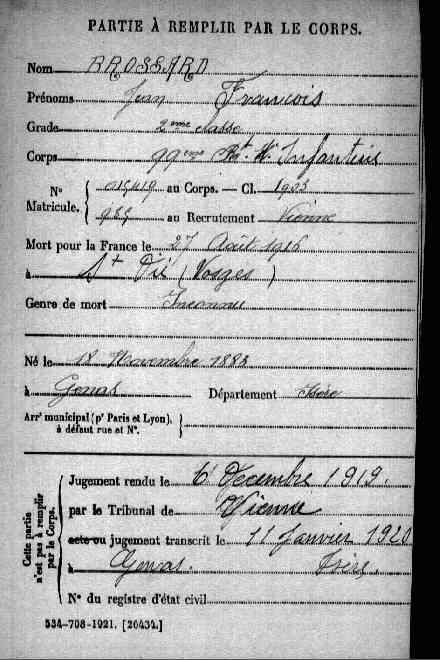 PARTIE À REMPLIR PAR LE CORPS.
Nom BROSSARD
Prénoms Jean François
Grade 2ème classe
Corps 99ème Rt d'Infanterie
Nº Matricule. 015419 au Corps. — Cl. 1903
985 au Recrutement Vienne
Mort pour la France le 27 Août 1916
à St Dié (Vosges)
Genre de mort Inconnu
Né le 18 Novembre 1883
à Genas Département Isère
Arrt municipal (pr Paris et Lyon), à défaut rue et Nº.
Cette partie n'est pas à remplir par le Corps.
Jugement rendu le 6 Décembre 1919.
par le Tribunal de Vienne
acte ou jugement transcrit le 11 Janvier 1920
à Genas. Isère.
Nº du registre d'état civil
534-708-1921. [26434.]